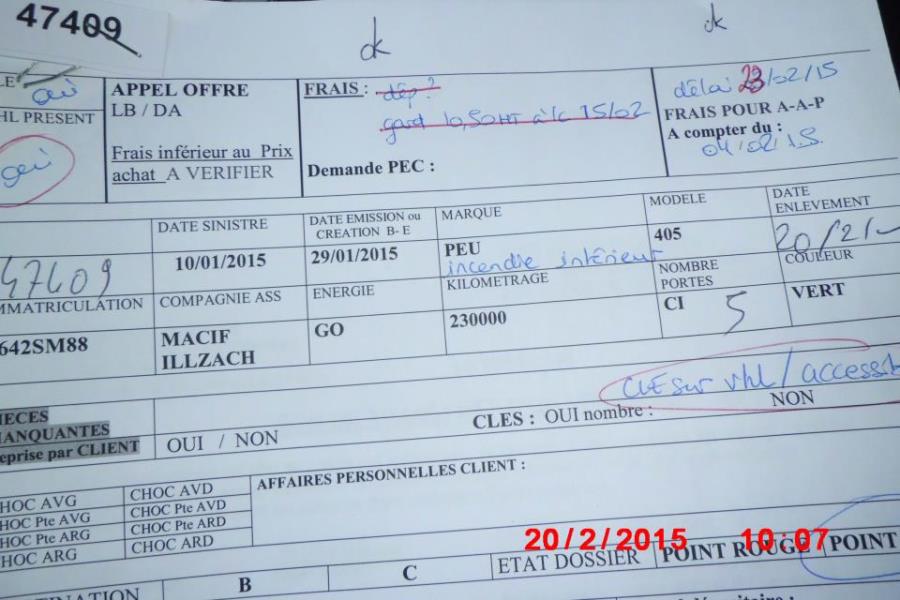 47409
ok
ok
oui
HL PRESENT
oui
APPEL OFFRE
LB / DA
Frais inférieur au Prix
achat A VERIFIER
FRAIS :
dép ?
gard 10,50HT à/c 15/02
Demande PEC :
délai 23/02/15
FRAIS POUR A-A-P
A compter du :
04/02/15.
DATE SINISTRE
DATE EMISSION ou
CREATION B- E
MARQUE
MODELE
DATE
ENLEVEMENT
47409
10/01/2015
29/01/2015
PEU
incendie intérieur
405
20/2/
MMATRICULATION
COMPAGNIE ASS
ENERGIE
KILOMETRAGE
NOMBRE
PORTES
COULEUR
642SM88
MACIF
ILLZACH
GO
230000
CI 5
VERT
IECES
MANQUANTES
eprise par CLIENT
OUI / NON
CLES : OUI nombre :
NON
CLE sur vhl / accessib
HOC AVG
HOC Pte AVG
HOC Pte ARG
HOC ARG
CHOC AVD
CHOC Pte AVD
CHOC Pte ARD
CHOC ARD
AFFAIRES PERSONNELLES CLIENT :
20/2/2015 10:07
B
C
ETAT DOSSIER
POINT ROUGE
POINT